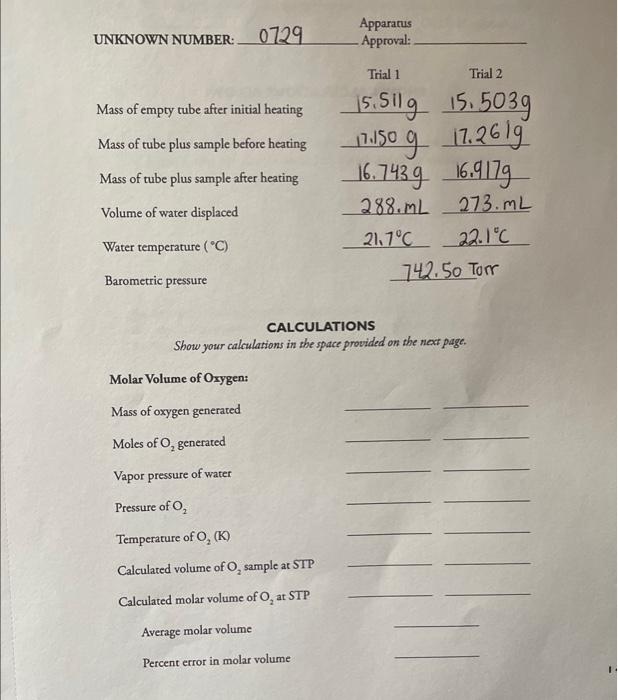 UNKNOWN NUMBER: 0729 Apparatus Approval:
Trial 1 Trial 2
Mass of empty tube after initial heating 15.511g 15.503g
Mass of tube plus sample before heating 17.150 g 17.261g
Mass of tube plus sample after heating 16.743g 16.917g
Volume of water displaced 288.mL 273.mL
Water temperature (°C) 21.7°C 22.1°C
Barometric pressure 742.50 Torr
CALCULATIONS
Show your calculations in the space provided on the next page.
Molar Volume of Oxygen:
Mass of oxygen generated
Moles of O₂ generated
Vapor pressure of water
Pressure of O₂
Temperature of O₂ (K)
Calculated volume of O₂ sample at STP
Calculated molar volume of O₂ at STP
Average molar volume
Percent error in molar volume